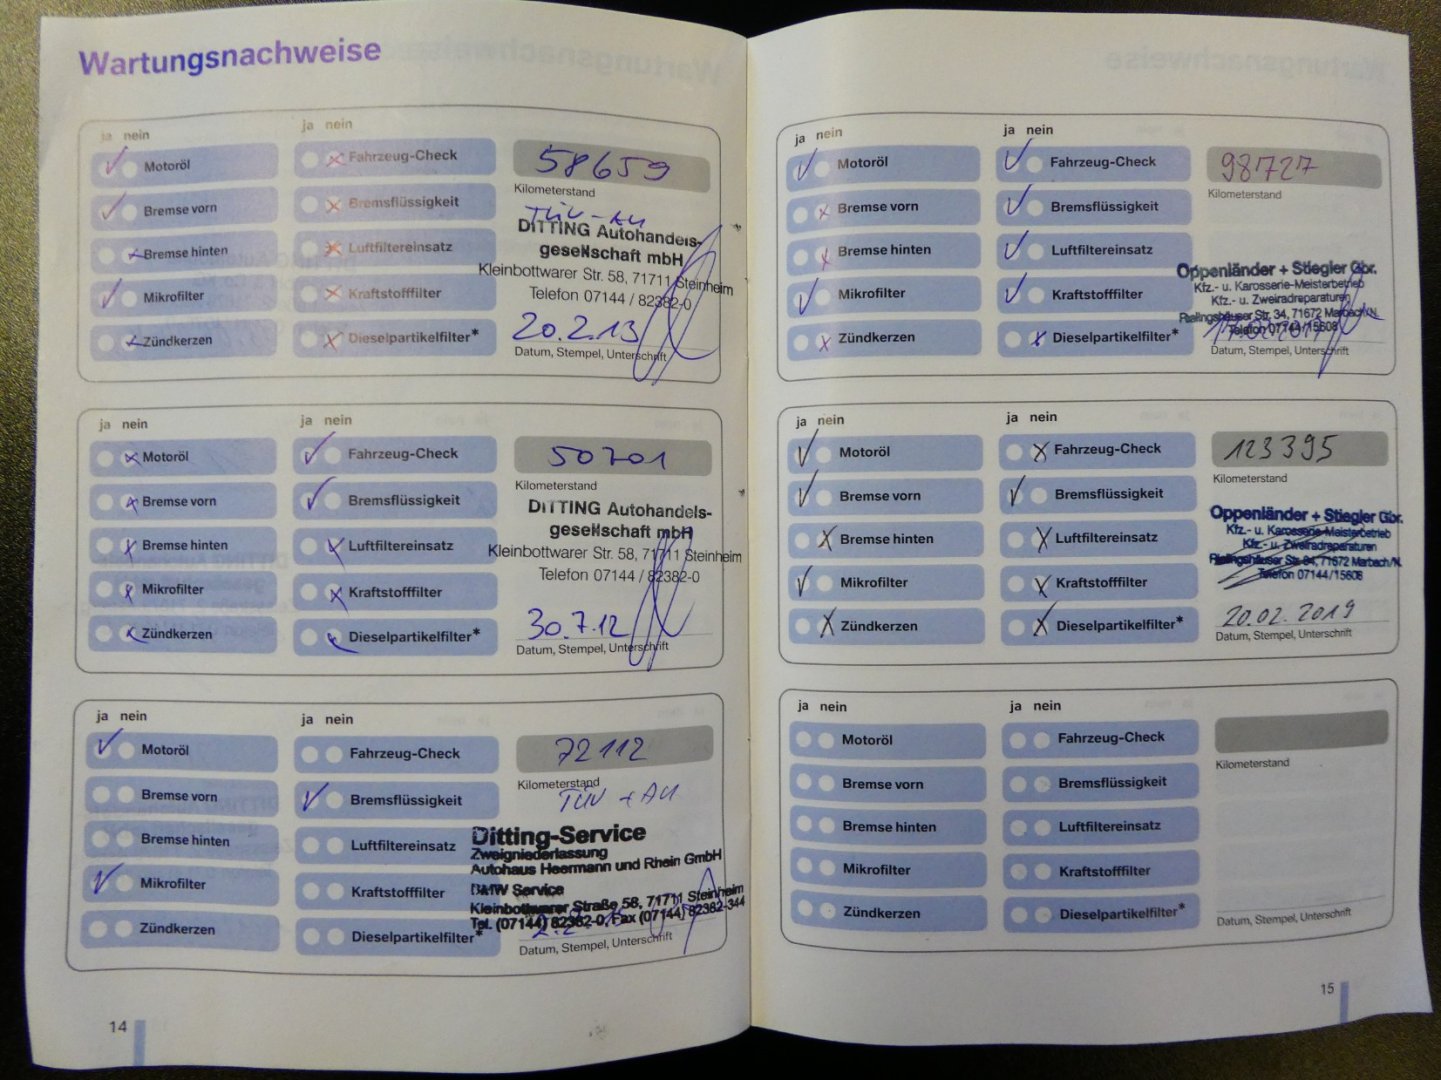 Wartungsnachweise
ja nein
ja nein
Motoröl
Fahrzeug-Check
58659
Kilometerstand
Bremse vorn
Bremsflüssigkeit
TÜV-AU
DITTING Autohandels-
gesellschaft mbH
Bremse hinten
Luftfiltereinsatz
Kleinbottwarer Str. 58, 71711 Steinheim
Mikrofilter
Kraftstofffilter
Telefon 07144 / 82382-0
Zündkerzen
Dieselpartikelfilter*
20.2.13
Datum, Stempel, Unterschrift
ja nein
ja nein
Motoröl
Fahrzeug-Check
50701
Kilometerstand
Bremse vorn
Bremsflüssigkeit
DITTING Autohandels-
gesellschaft mbH
Bremse hinten
Luftfiltereinsatz
Kleinbottwarer Str. 58, 71711 Steinheim
Telefon 07144 / 82382-0
Mikrofilter
Kraftstofffilter
Zündkerzen
Dieselpartikelfilter*
30.7.12
Datum, Stempel, Unterschrift
ja nein
ja nein
Motoröl
Fahrzeug-Check
72112
Kilometerstand
Bremse vorn
Bremsflüssigkeit
TÜV + AU
Bremse hinten
Luftfiltereinsatz
Ditting-Service
Zweigniederlassung
Autohaus Heermann und Rhein GmbH
Mikrofilter
Kraftstofffilter
BMW Service
Kleinbottwarer Straße 58, 71711 Steinheim
Tel. (07144) 82382-0, Fax (07144) 82382-344
Zündkerzen
Dieselpartikelfilter*
Datum, Stempel, Unterschrift
14
ja nein
ja nein
Motoröl
Fahrzeug-Check
98727
Kilometerstand
Bremse vorn
Bremsflüssigkeit
Bremse hinten
Luftfiltereinsatz
Oppenländer + Stiegler Gbr.
Kfz.- u. Karosserie-Meisterbetrieb
Kfz.- u. Zweiradreparaturen
Mikrofilter
Kraftstofffilter
Str. 34, 71672 Marbach/N.
Telefon 07144/15608
Zündkerzen
Dieselpartikelfilter*
Datum, Stempel, Unterschrift
ja nein
ja nein
Motoröl
Fahrzeug-Check
123395
Kilometerstand
Bremse vorn
Bremsflüssigkeit
Oppenländer + Stiegler Gbr.
Kfz.- u. Karosserie-Meisterbetrieb
Kfz.- u. Zweiradreparaturen
Bremse hinten
Luftfiltereinsatz
Str. 34, 71672 Marbach/N.
Telefon 07144/15608
Mikrofilter
Kraftstofffilter
Zündkerzen
Dieselpartikelfilter*
20.02.2019
Datum, Stempel, Unterschrift
ja nein
ja nein
Motoröl
Fahrzeug-Check
Kilometerstand
Bremse vorn
Bremsflüssigkeit
Bremse hinten
Luftfiltereinsatz
Mikrofilter
Kraftstofffilter
Zündkerzen
Dieselpartikelfilter*
Datum, Stempel, Unterschrift
15